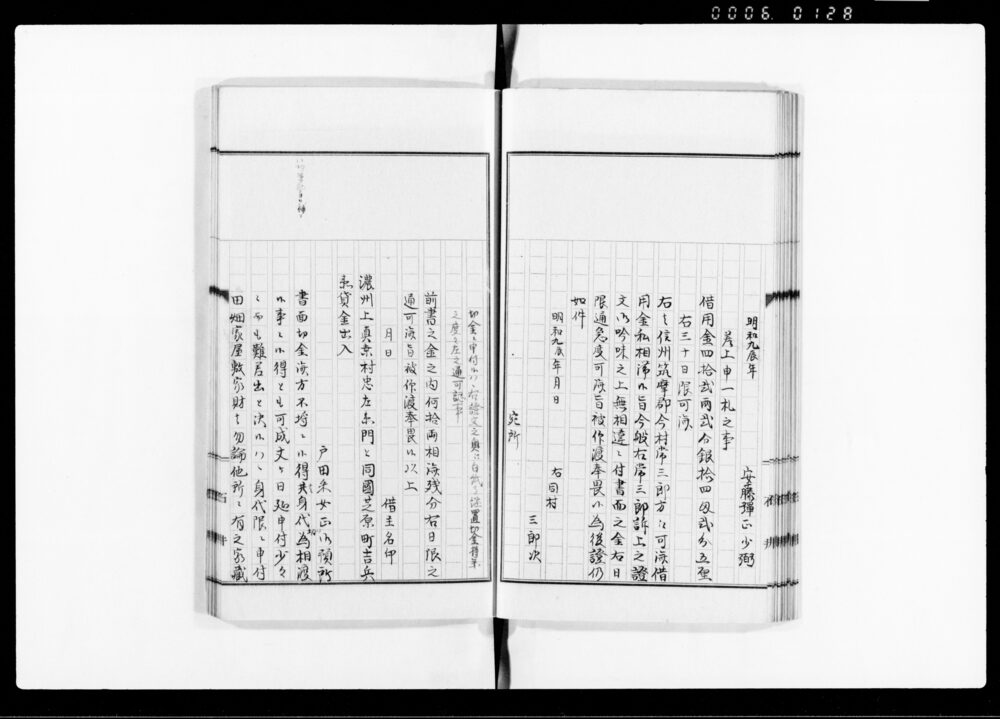 0006. 0128
明和九辰年
安藤彈正少弼
差上申一札之事
借用金四拾弐両弐分銀拾四匁弐分五厘
右三十日限可済
右は信州筑摩郡今村常三郎方え可済借
用金私相滞候旨今般右常三郎訴上之證
文御吟味之上無相違に付書面之金右日
限通急度可済旨被仰渡奉畏候為後證仍
如件
明和九辰年月日
右同村
三郎次
宛所
前書之金之内何拾両相済残分右日限之
通可済旨被仰渡奉畏候以上
月日
借主名印
濃州上真桑村忠左衛門と同國芝原町吉兵
衛貸金出入
戸田采女正御預所
書面切金済方不埒に候得共身代為相渡
候事に候得とも可成丈ケ日延申付少々
にても難差出と決候ハヽ身代限に申付
田畑家屋敷家財は勿論他所に有之家蔵